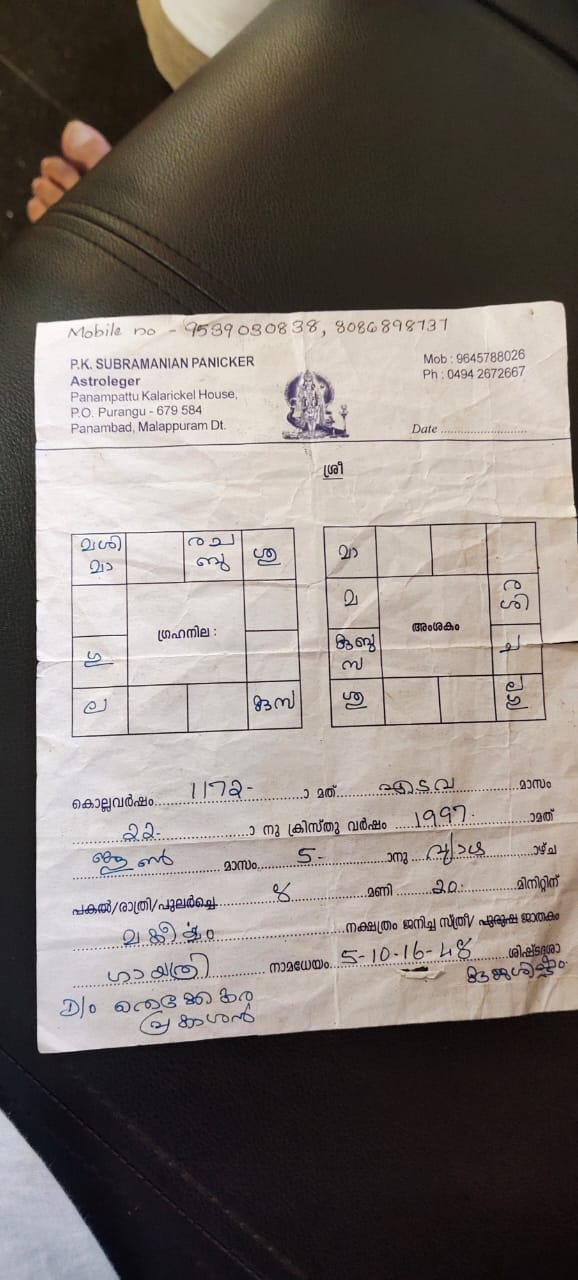 Mobile no - 9539030838, 8086898737
P.K. SUBRAMANIAN PANICKER
Astroleger
Panampattu Kalarickel House,
P.O. Purangu - 679 584
Panambad, Malappuram Dt.
Mob : 9645788026
Ph : 0494 2672667
Date
ശ്രീ
മശി രച ശു
മാ ബു
ഗ്രഹനില :
ഗു
ല
മാ
മ
അംശകം
ര
ശി
ച
ശു
കൊല്ലവർഷം 1172- ാമത് എടവ മാസം
22- ാം നു ക്രിസ്തു വർഷം 1997. ാമത്
ജൂൺ മാസം 5- ാനു വ്യാഴ ാഴ്ച
പകൽ/രാത്രി/പുലർച്ചെ 8 മണി 20. മിനിറ്റിന്
മകീര്യം നക്ഷത്രം ജനിച്ച സ്ത്രീ/ പുരുഷ ജാതകം
ഗായത്രി നാമധേയം 5-10-16-48 ശിഷ്ടദശാ
D/o പ്രകാശൻ